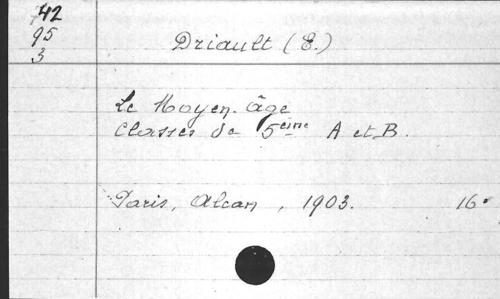 42
95
3
Driault (E.)
Le Moyen-âge
Classes de 5eime A et B.
Paris, Alcan, 1903. 16°